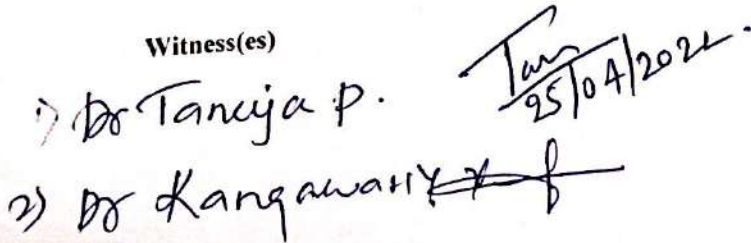 Witness(es)
1) Dr Tanuja P.
25/04/202
2) Dr Kangawar